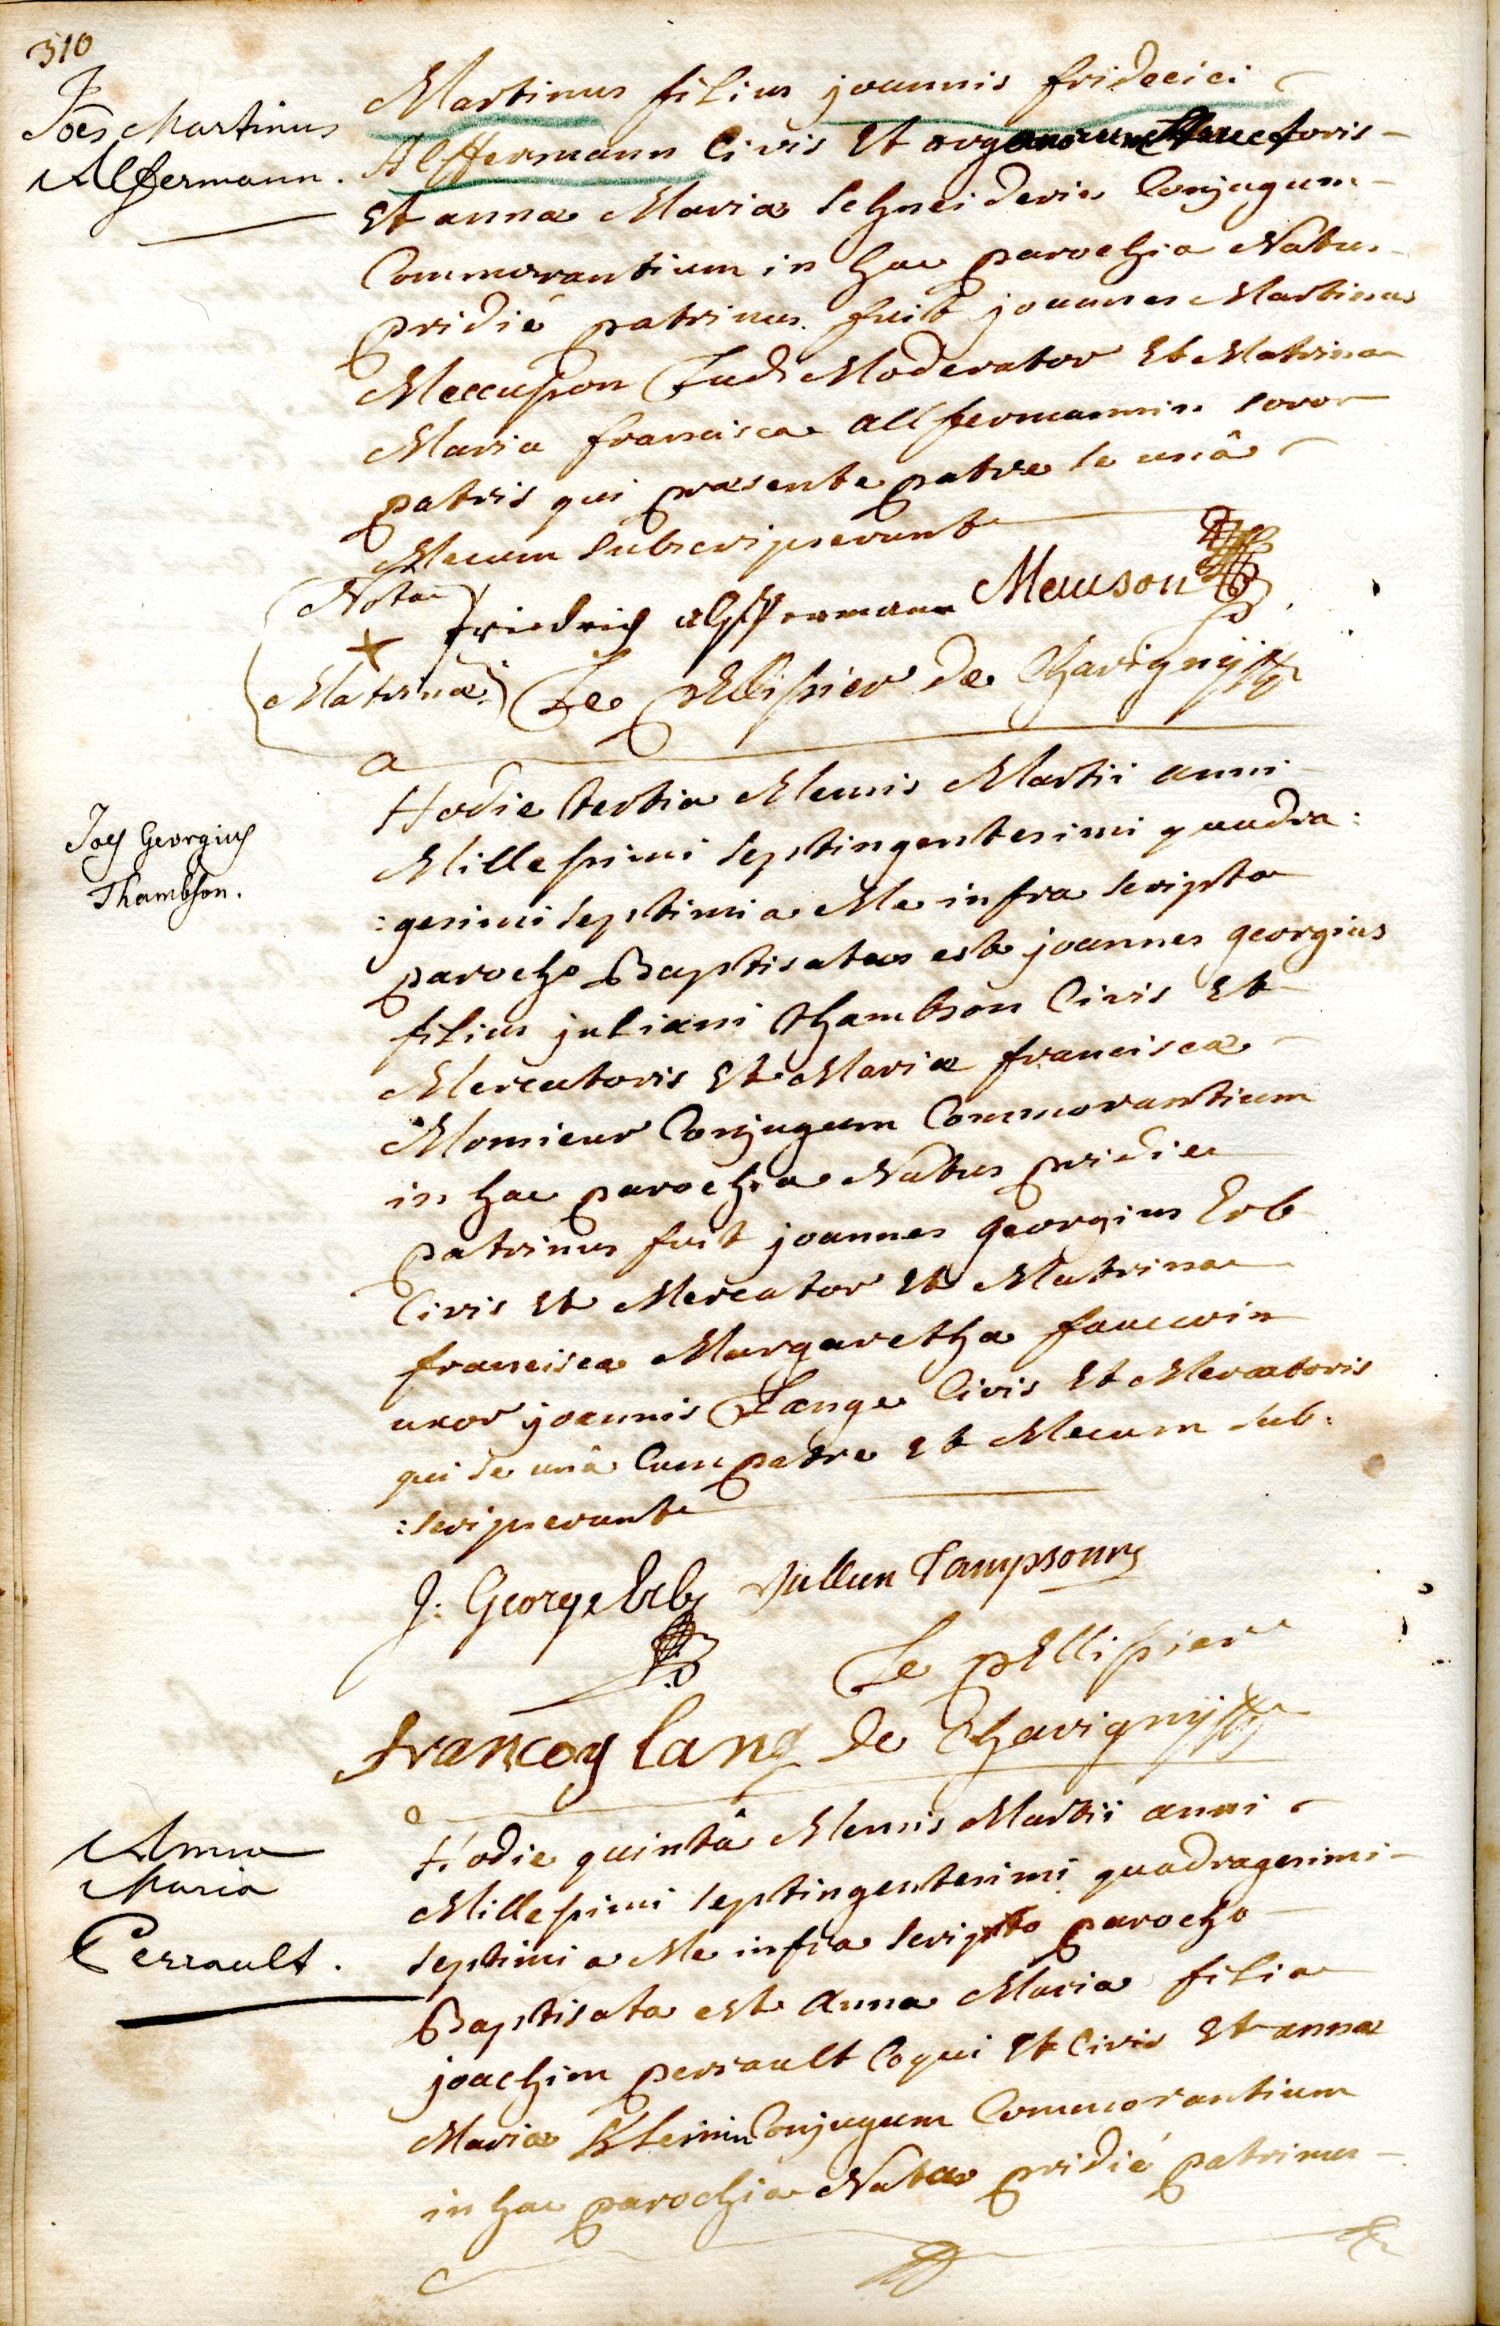 310
Joēs Martinus
Alffermann.
Martinus filius joannis friderici
Alffermann Civis Et organorum
Et annæ Mariæ Schneiderin Conjugum
Commorantium in hac parochia Natus
pridié patrinus fuit joannes Martinus
Ludi Moderator Et Matrina
Maria francisca allffermannin soror
patris qui præsente patre se unâ
Mecum subscripserunt
Nota
+
Matrinæ
friedrich alffermann
Le pEllissier de Chavignÿ
Joēs Georgius
Thambson.
Hodie tertia Mensis Martii anni
Millessimi septingentesimi quadra:
:gesimi septimi a Me infra scripto
parocho Baptisatus est joannes georgius
filius juliani thambson Civis Et
Mercatoris Et Mariæ franciscæ
Momieur Conjugum Commorantium
in hac parochia Natus pridie
patrinus fuit joannes georgius Erb
Civis Et Mercator Et Matrina
francisca Margaretha
uxor joannis Lange Civis Et Mercatoris
qui se unâ Cum patre Et Mecum sub:
:scripserunt
J: George Erb Jullien Tampsonn
Le pEllissier
francoy lang de Chavignÿ
Anna
Maria
Perrault.
Hodie quintâ Mensis Martii anni
Millessimi septingentesimi quadragesimi
septimi a Me infra scripto parocho
Baptisata est Anna Maria filia
joachim perrault Coqui Et Civis Et annæ
Mariæ Kleinin Conjugum Commorantium
in hac parochia Nata pridié patrinus